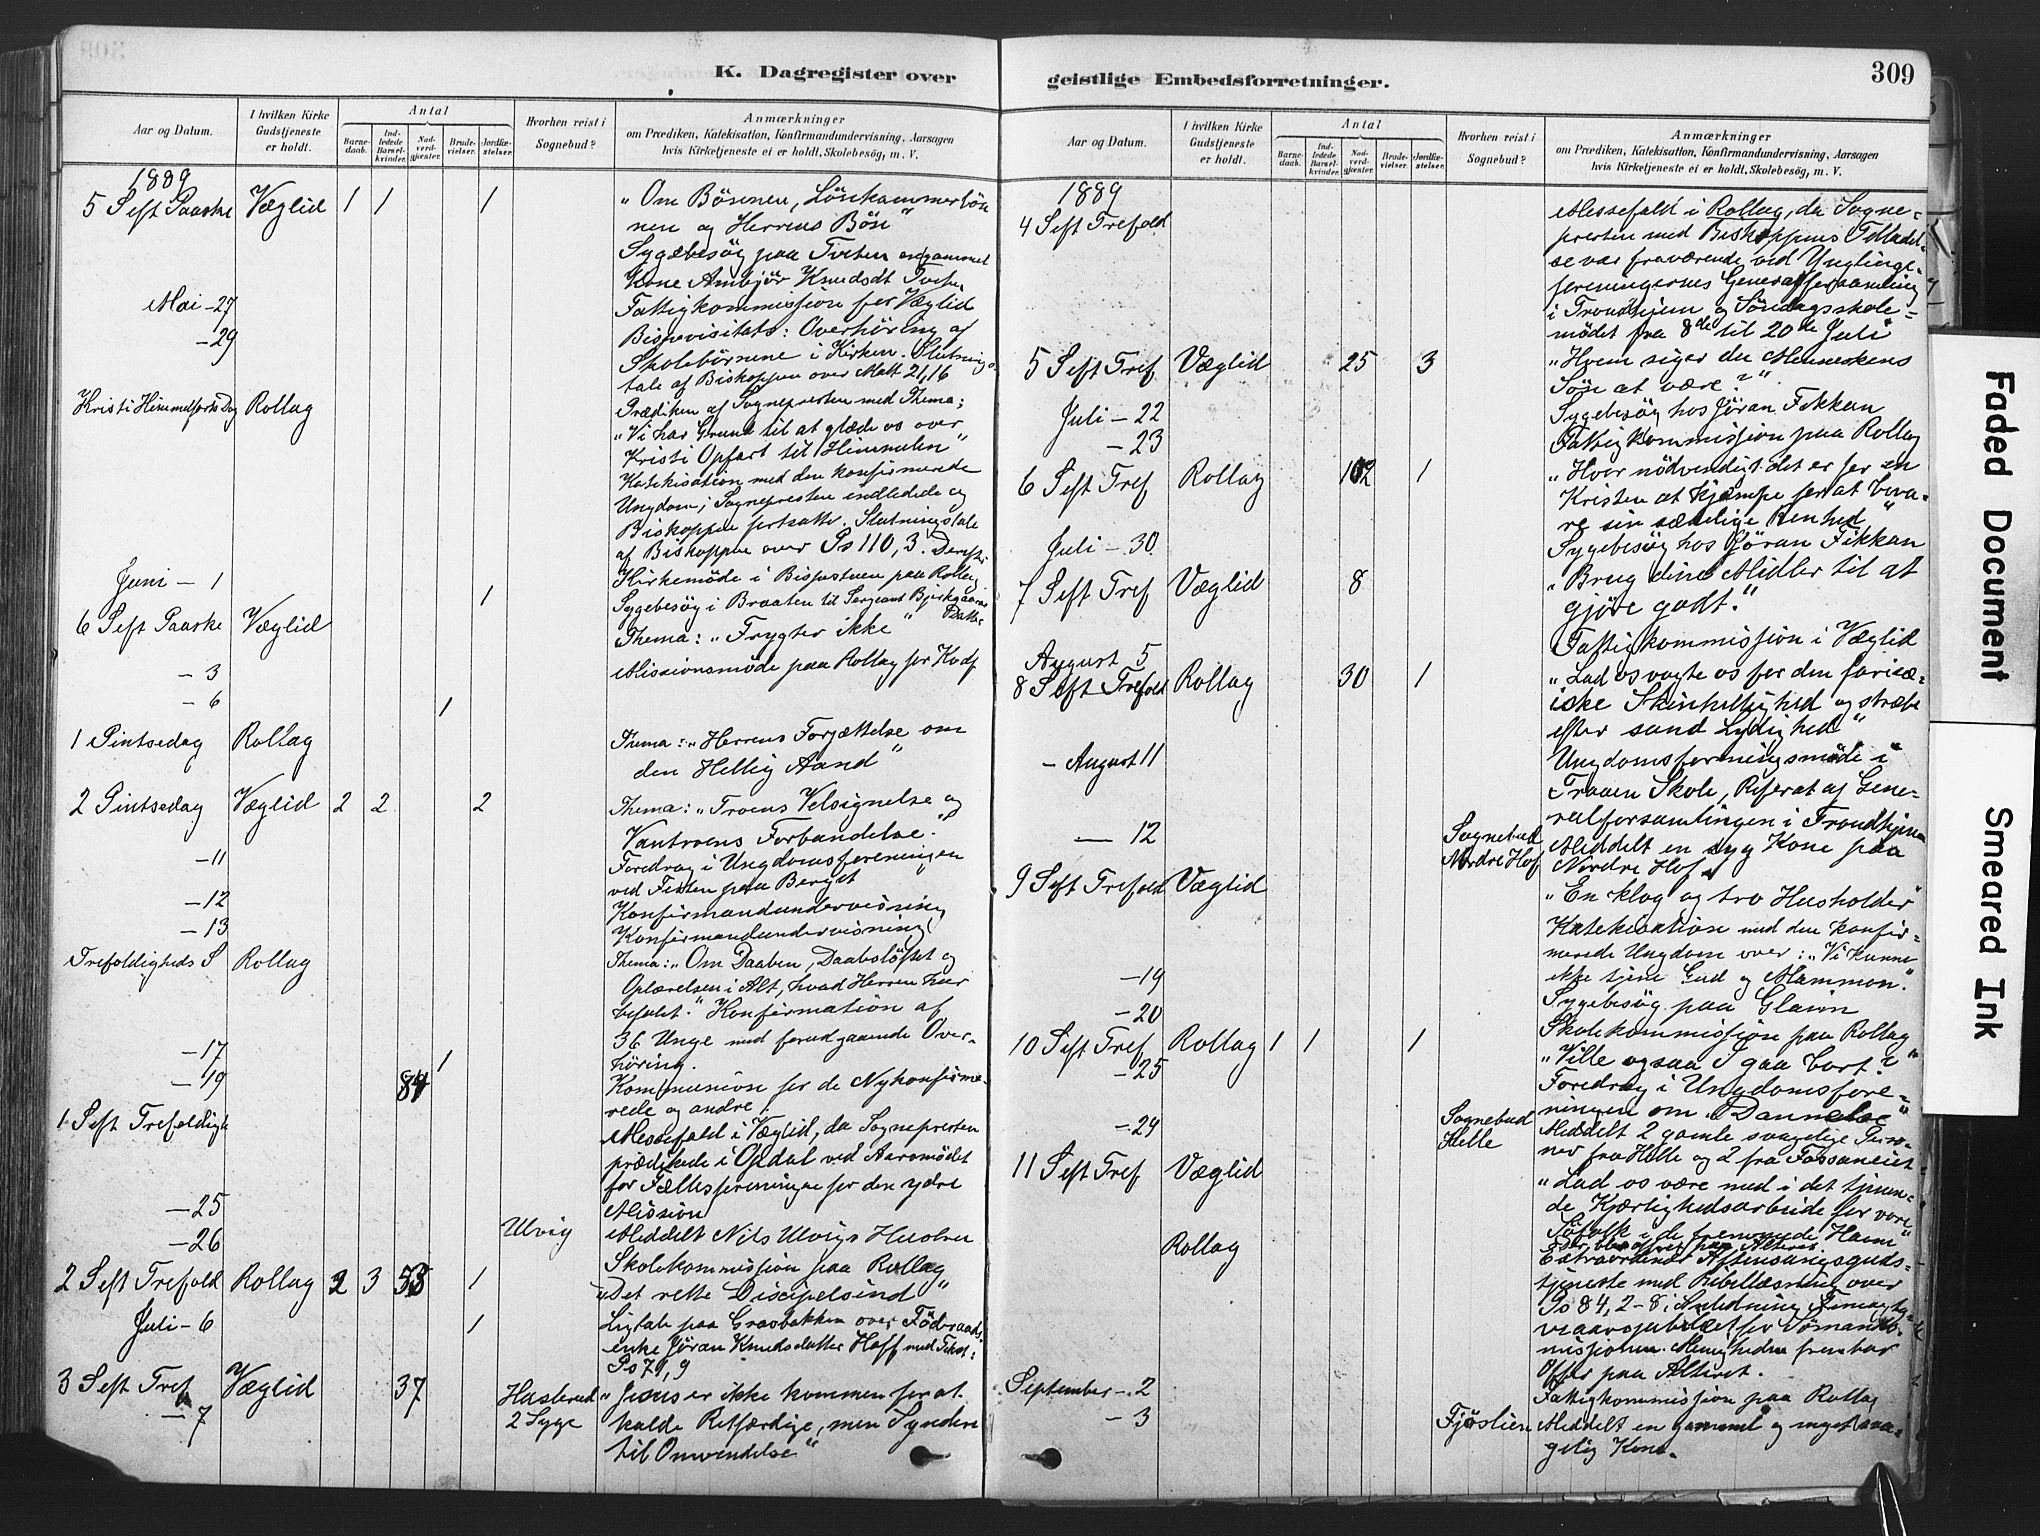 K. Dagregister over
Aar og Datum.
I hvilken Kirke Gudstjeneste er holdt.
Antal
Barnedaab.
Indledede Barselkvinder.
Nadverdgjester.
Brudevielser.
Jordfæstelser.
Hvorhen reist i Sognebud?
Anmærkninger
om Prædiken, Katekisation, Konfirmandundervisning, Aarsagen
hvis Kirketjeneste ei er holdt, Skolebesøg, m. V.
1889
5 S eft Paaske Væglid 1 1 1 „Om Bönnen, Lönkammerbön
nen og Herrens Bön"
Sygebesög paa Tveten en gammel
Kone Ambjör Knudsdt Tveten
Mai - 27 Fattigkommission for Væglid
- 29 Bispevisitats: Overhöring af
Skolebörnene i Kirken. Slutnings-
tale af Biskoppen over Matt 21,16
Kristi Himmelfarts Dag Rollag Prædiken af Sognepresten med Thema;
„Vi har Grund til at glæde os over
Kristi Opfart til Himmelen"
Katekisation med den konfirmerede
Ungdom; Sognepresten indledede og
Biskoppen fortsatte. Slutningstale
af Biskoppen over Ps 110, 3. Derefter
Kirkemöde i Bispestuen paa Rollag
Juni - 1 1 Sygebesög i Braaten til Sergeant Bjerkgaarns Datter
6 S eft Paaske Væglid Thema: „Frygter ikke"
- 3 Missionsmöde paa Rollag for Kvdf
- 6 1
1 Pintsedag Rollag Thema: „Herrens Forjættelse om
den Hellig Aand"
2 Pintsedag Væglid 2 2 2 Thema: „Troens Velsignelse og
Vantroens Forbandelse."
- 11 Foredrag i Ungdomsforeningen
ved Festen paa Berget
- 12 Konfirmandundervisning
- 13 Konfirmandundervisning
Trefoldigheds S Rollag Thema: „Om Daaben, Daabslöftet og
Oplærelsen i Alt, hvad Herren har
befalet." Konfirmation af
36 Unge med forudgaaende Over-
- 17 1 höring.
- 19 84 Kommunion for de Nykonfirme-
rede og andre.
1 S eft Trefoldigh Messefald i Væglid, da Sognepresten
prædikede i Opdal ved Aarsmödet
for Fællesforeningen for den ydre
- 25 Mission
- 26 Ulvig Meddelt Nils Ulvigs Hustru
Skolekommission paa Rollag
2 S eft Trefold Rollag 2 3 53 1 „Det rette Discipelsind"
Juli - 6 1 Ligtale paa Grasbakken over Föderaads-
enke Jöran Knudsdatter Hoff med Text:
Ps 71, 9
3 S eft Tref Væglid 37 Haslerud „Jesus er ikke kommen for at
- 7 2 Syge kalde Retfærdige, men Syndere
til Omvendelse"
geistlige Embedsforretninger.
309
Aar og Datum.
I hvilken Kirke Gudstjeneste er holdt.
Antal
Barnedaab.
Indledede Barselkvinder.
Nadverdgjester.
Brudevielser.
Jordfæstelser.
Hvorhen reist i Sognebud?
Anmærkninger
om Prædiken, Katekisation, Konfirmandundervisning, Aarsagen
hvis Kirketjeneste ei er holdt, Skolebesøg, m. V.
1889
4 S eft Trefold Messefald i Rollag, da Sogne-
presten med Biskoppens Tilladel-
se var fraværende ved Ynglinge-
foreningernes Generalforsamling
i Trondhjem og Söndagsskole-
mödet fra 8de til 20de Juli
5 S eft Tref Væglid 25 3 „Hvem siger du Menneskens
Sön at være?"
Juli - 22 Sygebesög hos Jöran Fikkan
- 23 Fattigkommission paa Rollag
6 S eft Tref Rollag 102 1 „Hvor nödvendigt det er for en
Kristen at kjæmpe for at beva-
re sin sædelige Renhed"
Juli - 30 Sygebesög hos Jöran Fikkan
7 S eft Tref Væglid 8 „Brug dine Midler til at
gjöre godt."
August 5 Fattigkommission i Væglid
8 S eft Trefold Rollag 30 1 „Lad os vogte os for den farisæ-
iske Skinhellighed og stræbe
efter sand Lydighed"
- August 11 Ungdomsforeningsmöde i
Traaen Skole, Referat af Gene-
ralforsamlingen i Trondhjem
- 12 Sognebud Nordre Hof Meddelt en syg Kone paa
Nordre Hof
9 S eft Trefold Væglid „En klog og tro Husholder"
Katekisation med den konfir-
merede Ungdom over: „Vi kunne
ikke tjene Gud og Mammon."
- 19 Sygebesög paa Glaim
- 20 Skolekommission paa Rollag
10 S eft Tref Rollag 1 1 1 „Ville ogsaa I gaa bort?"
- 25 Foredrag i Ungdomsfore-
ningen om „Dannelse"
- 29 Sognebud Helle Meddelt 2 gamle svagelige Perso-
ner fra Helle og 2 fra Fossaneiet
11 S eft Tref Væglid „Lad os være med i det tjenen-
de Kjærlighedsarbeide for vore
Söfolk i de fremmede Havne"
Der blev ofret paa Alteret
Rollag Extraordinær Aftensangsguds-
tjeneste med Bibellæsning over
Ps 84, 2-8 i Anledning Femogty-
veaarsjubilæet for Sömands-
missionen. Menigheden frembar
Offer paa Alteret.
September - 2 Fattigkommission paa Rollag
- 3 Fjöslien Meddelt en gammel og meget sva-
gelig Kone.
Faded Document
Smeared Ink